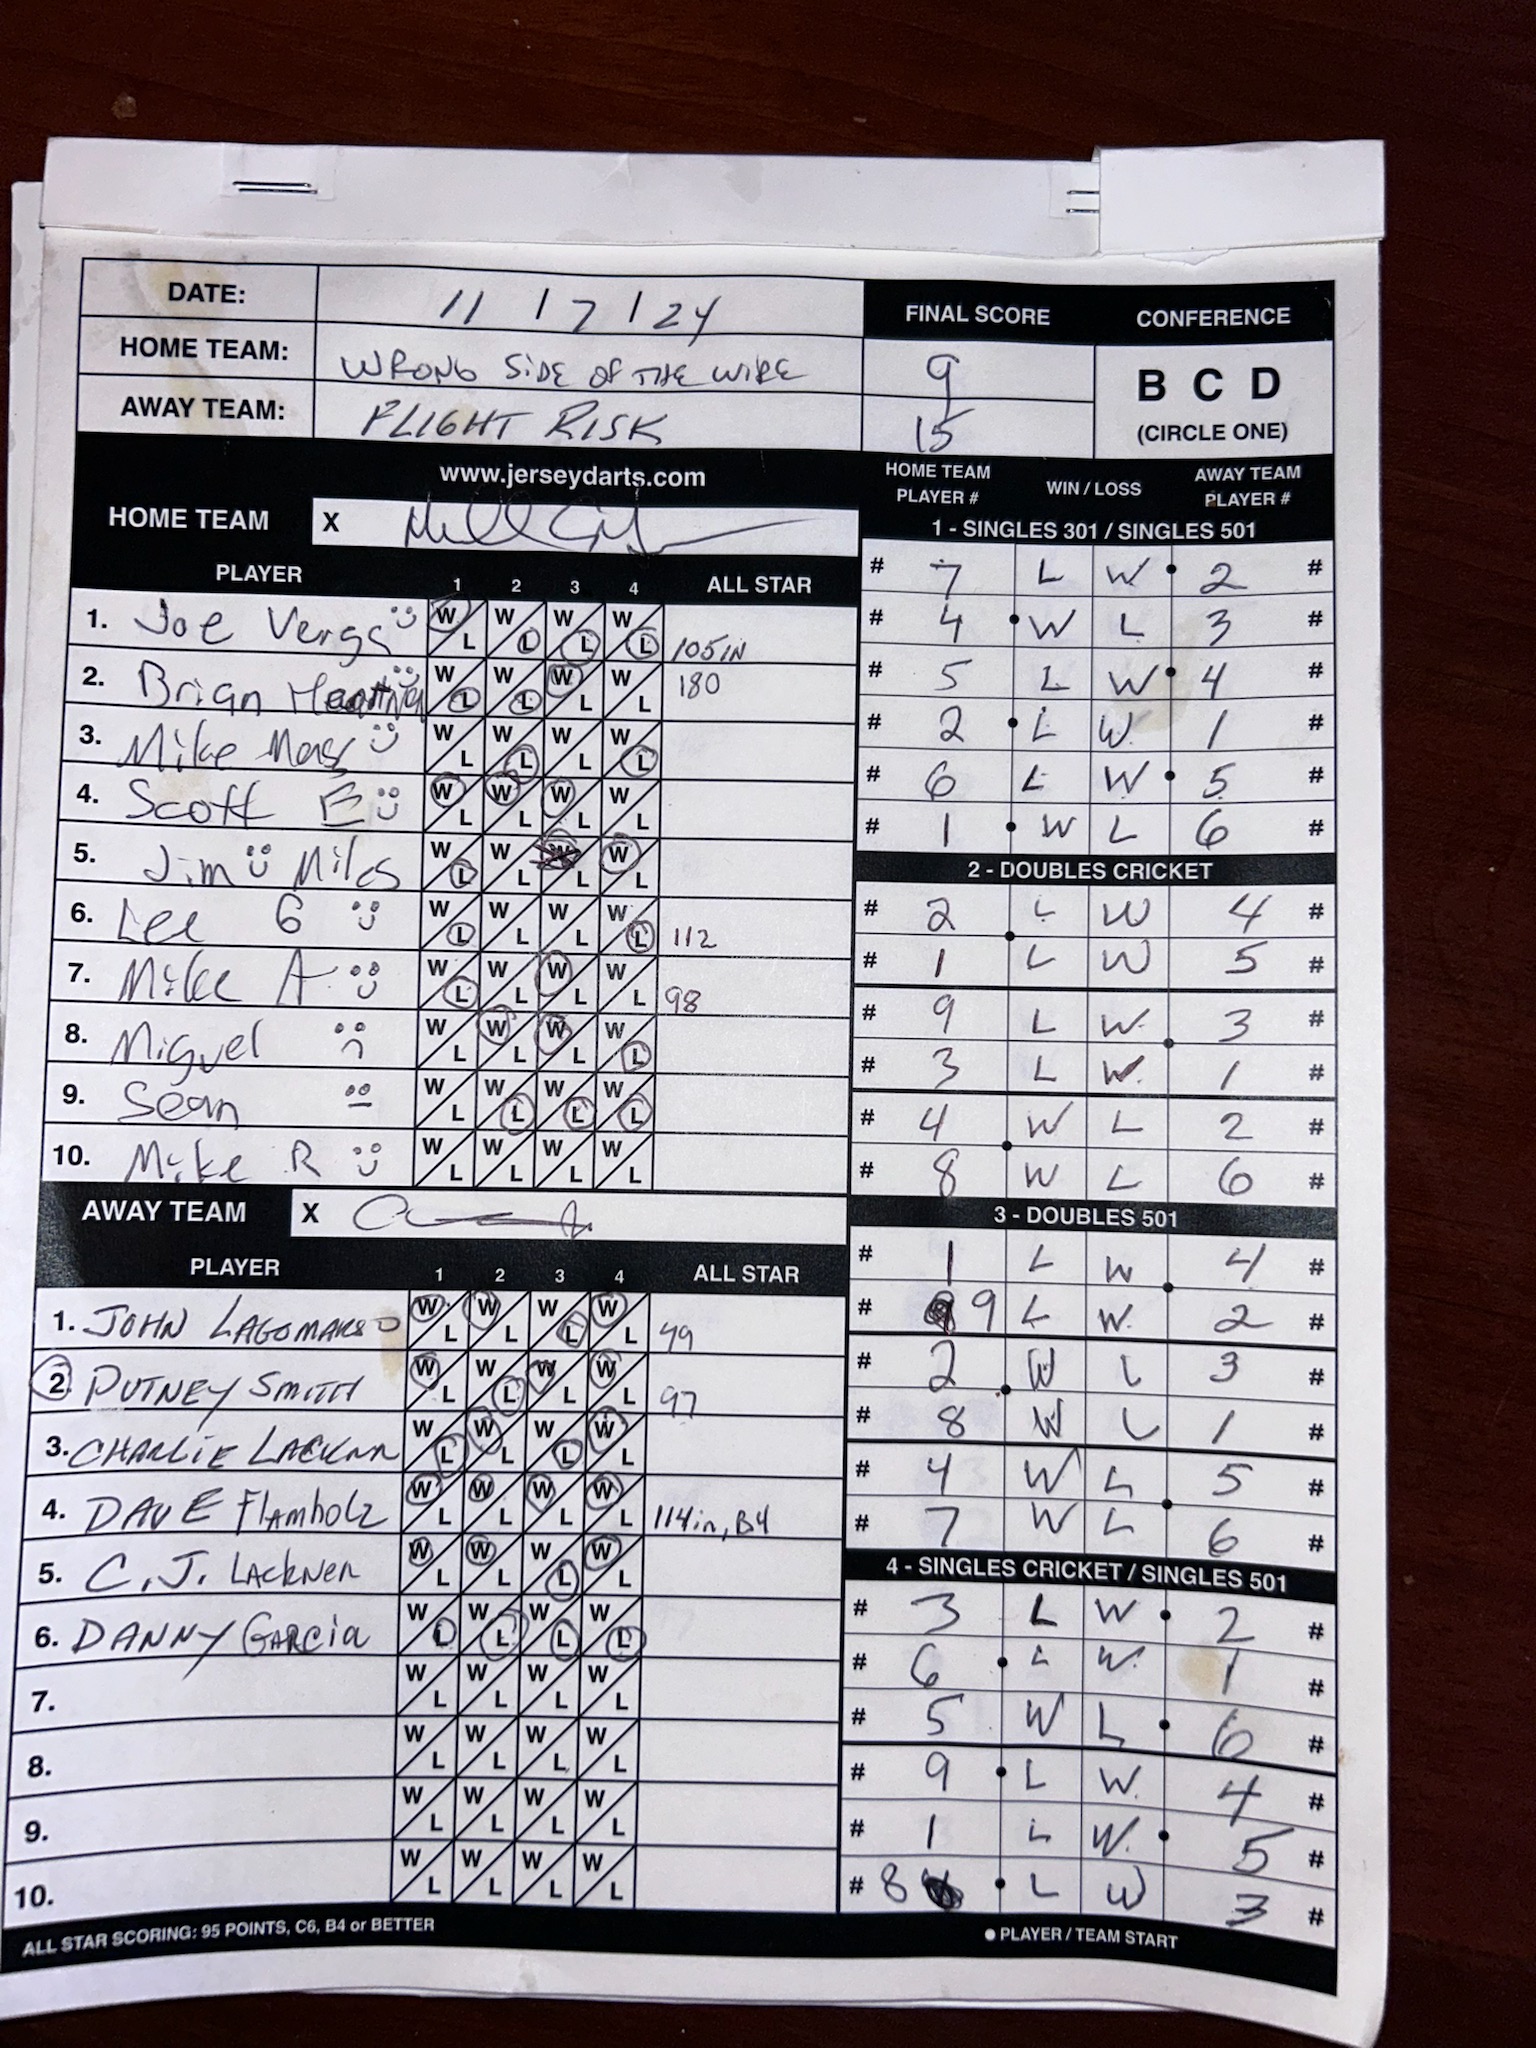 DATE: 11 / 7 / 24
HOME TEAM: WRONG SIDE OF THE WIRE
AWAY TEAM: FLIGHT RISK
FINAL SCORE
9
15
CONFERENCE
B C D
(CIRCLE ONE)
www.jerseydarts.com
HOME TEAM X
PLAYER 1 2 3 4 ALL STAR
1. Joe Vergs W L W L W L W L 105 IN
2. Brian W L W L W L W L 180
3. Mike W L W L W L W L
4. Scott E W L W L W L W L
5. Jim Miles W L W L L W L
6. Lee G W L W L W L W L 112
7. Mike A W L W L W L W L 98
8. Miguel W L W L W L W L
9. Sean W L W L W L W L
10. Mike R W L W L W L W L
AWAY TEAM X
PLAYER 1 2 3 4 ALL STAR
1. JOHN LAGOMARSO W L W L W L W L 99
2. PUTNEY SMITH W L W L W L W L 97
3. CHARLIE LACKNR W L W L W L W L
4. DAVE Flambolz W L W L W L W L 114in, B4
5. C.J. LACKNER W L W L W L W L
6. DANNY GARCIA W L W L W L W L
7. W L W L W L W L
8. W L W L W L W L
9. W L W L W L W L
10. W L W L W L W L
ALL STAR SCORING: 95 POINTS, C6, B4 or BETTER
HOME TEAM PLAYER # WIN / LOSS AWAY TEAM PLAYER #
1 - SINGLES 301 / SINGLES 501
# 7 L W 2 #
# 4 W L 3 #
# 5 L W 4 #
# 2 L W 1 #
# 6 L W 5 #
# 1 W L 6 #
2 - DOUBLES CRICKET
# 2 L W 4 #
# 1 L W 5 #
# 9 L W 3 #
# 3 L W 1 #
# 4 W L 2 #
# 8 W L 6 #
3 - DOUBLES 501
# 1 L W 4 #
# 9 L W 2 #
# 2 W L 3 #
# 8 W L 1 #
# 4 W L 5 #
# 7 W L 6 #
4 - SINGLES CRICKET / SINGLES 501
# 3 L W 2 #
# 6 L W 1 #
# 5 W L 6 #
# 9 L W 4 #
# 1 L W 5 #
# 8 L W 3 #
PLAYER / TEAM START